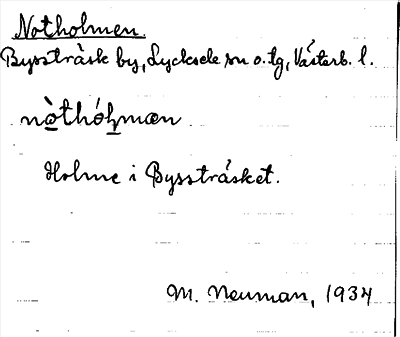 Notholmen
Bysstråsk by, Lycksele sn o. tg, Västerb. l.
nòthó̱lmæn
Holme i Bysstråsket.
M. Neuman, 1934